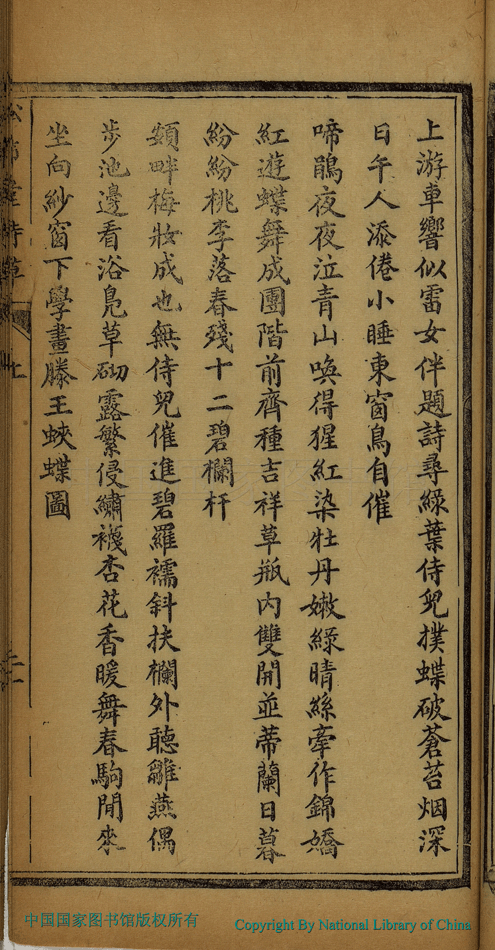 上游車響似雷女伴題詩尋綠葉侍兒撲蝶破蒼苔烟深
日午人添倦小睡東窗鳥自催
啼鵑夜夜泣青山喚得猩紅染牡丹嫩綠晴絲牽作錦嬌
紅遊蝶舞成團階前齊種吉祥草瓶內雙開並蒂蘭日暮
紛紛桃李落春殘十二碧欄杆
額畔梅妝成也無侍兒催進碧羅襦斜扶欄外聽雛燕偶
步池邊看浴鳧草砌露繁侵繡襪杏花香暖舞春駒閒來
坐向紗窗下學畫滕王蛺蝶圖
中国国家图书馆版权所有
Copyright By National Library of China